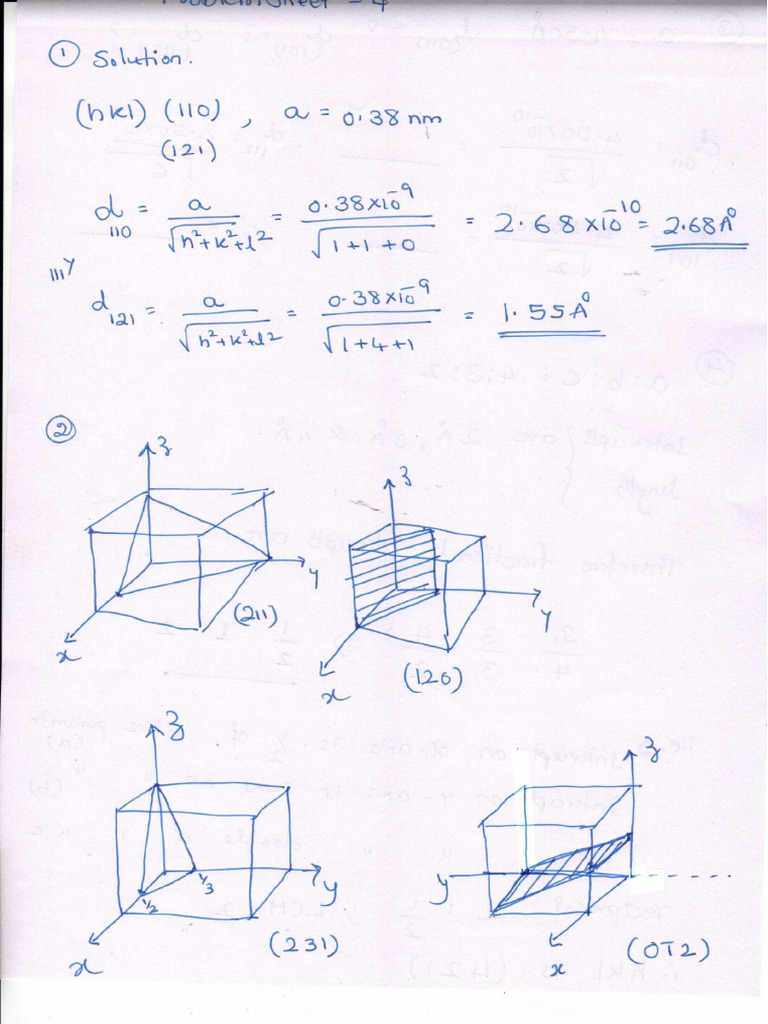 Problem Sheet - 4
① Solution.
(hkl) (110) , a = 0.38 nm
(121)
d₁₁₀ = a / √h²+k²+l² = 0.38×10⁻⁹ / √1+1+0 = 2.68×10⁻¹⁰ = 2.68A°
111y
d₁₂₁ = a / √h²+k²+l² = 0.38×10⁻⁹ / √1+4+1 = 1.55A°
②
z
y
x
(211)
z
y
x
(120)
z
y
x
1/2
1/3
(231)
z
y
x
(0T2)